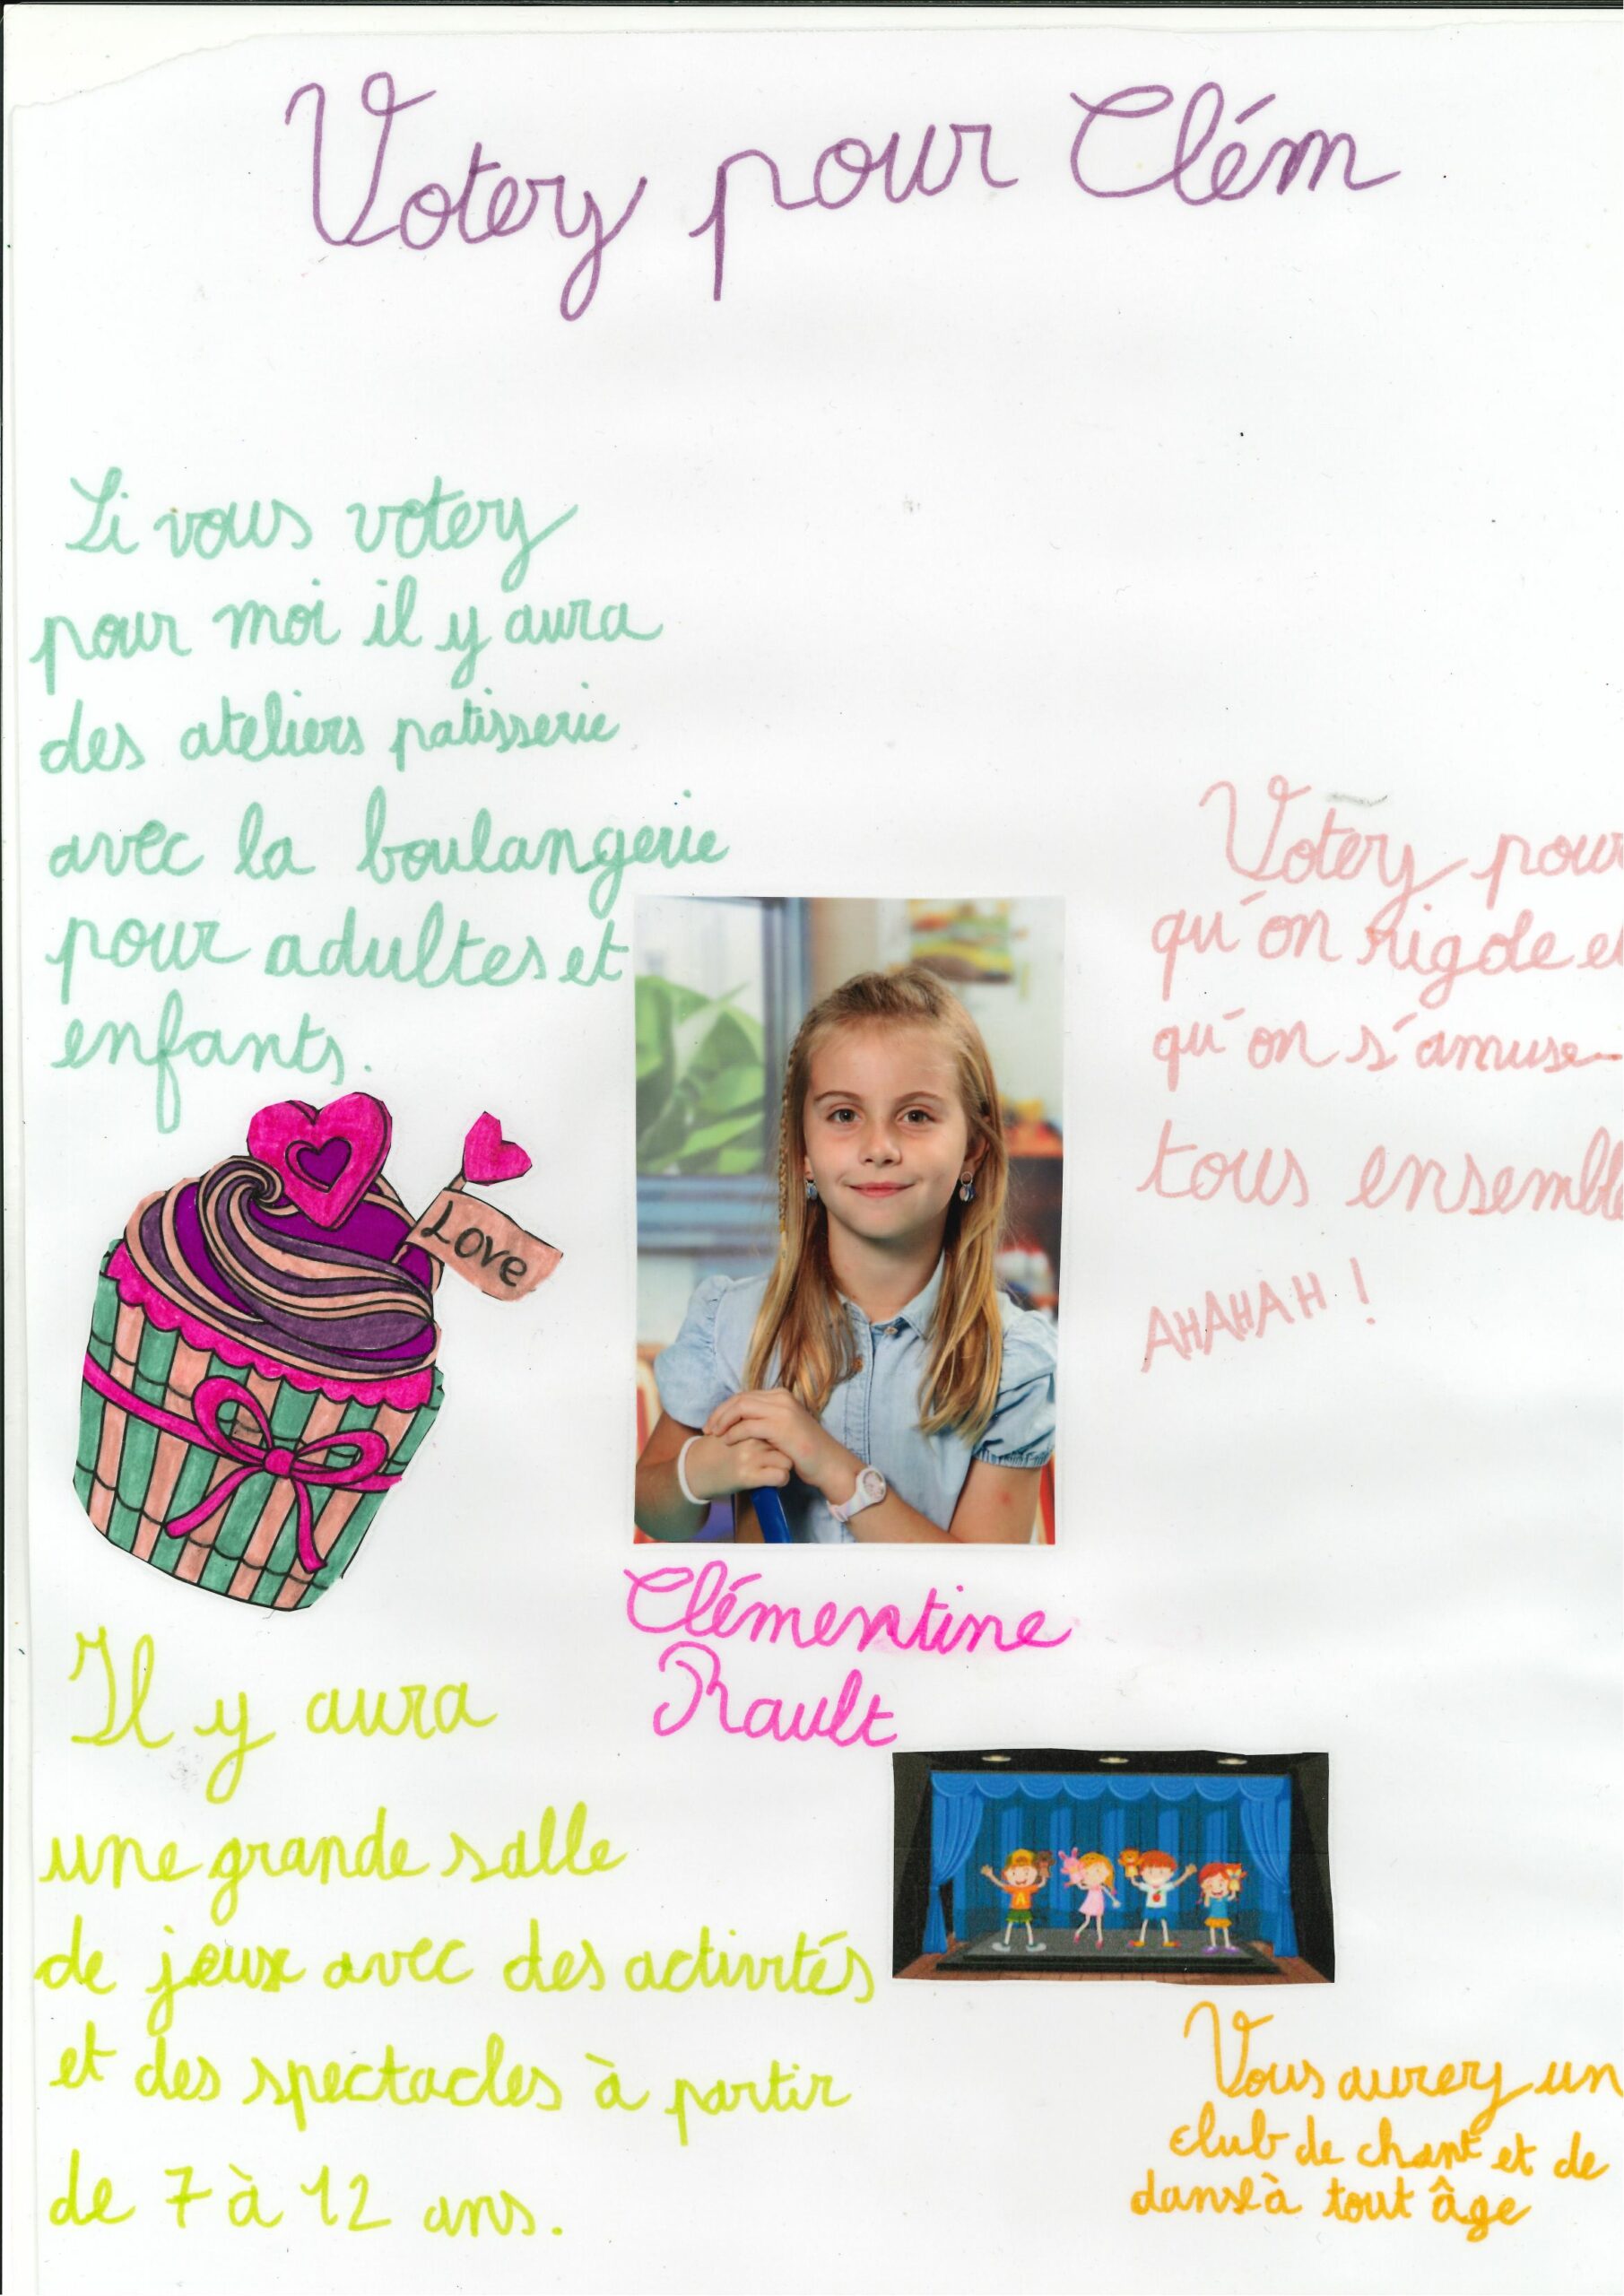 Votez pour Clém
Si vous votez
pour moi il y aura
des ateliers patisserie
avec la boulangerie
pour adultes et
enfants.
Love
Votez pour
qu'on rigole et
qu'on s'amuse
tous ensemble
AHAHAH !
Clémentine
Rault
Il y aura
une grande salle
de jeux avec des activités
et des spectacles à partir
de 7 à 12 ans.
Vous aurez un
club de chant et de
danse à tout âge